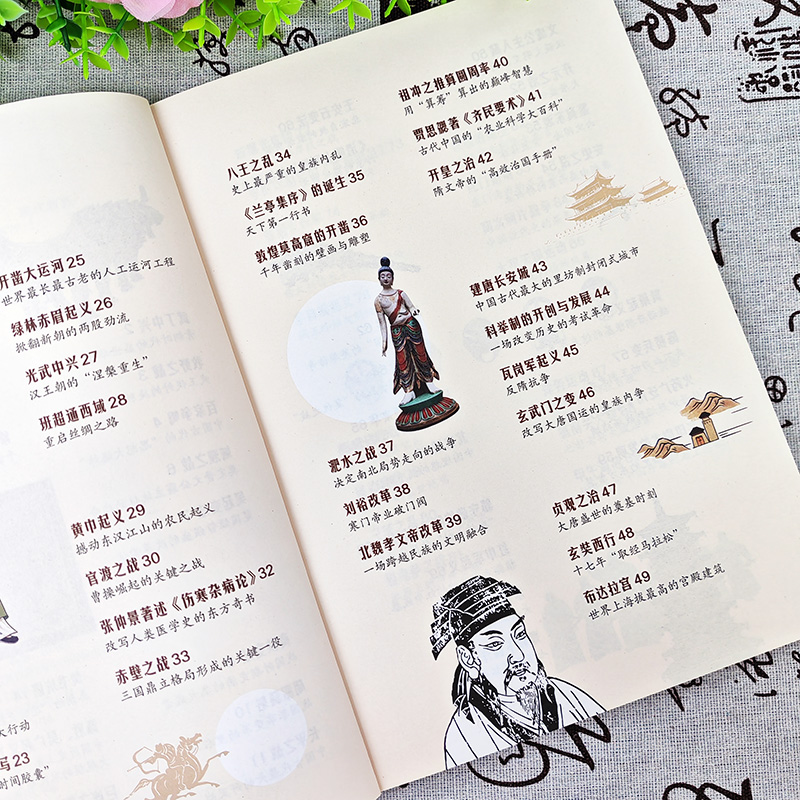 开凿大运河 25
世界最长最古老的人工运河工程
绿林赤眉起义 26
掀翻新朝的两股劲流
光武中兴 27
汉王朝的“涅槃重生”
班超通西域 28
重启丝绸之路
黄巾起义 29
撼动东汉江山的农民起义
官渡之战 30
曹操崛起的关键之战
张仲景著述《伤寒杂病论》 32
改写人类医学史的东方奇书
赤壁之战 33
三国鼎立格局形成的关键一役
大行动
写 23
时间胶囊”
八王之乱 34
史上最严重的皇族内乱
《兰亭集序》的诞生 35
天下第一行书
敦煌莫高窟的开凿 36
千年凿刻的壁画与雕塑
淝水之战 37
决定南北局势走向的战争
刘裕改革 38
寒门帝业破门阀
北魏孝文帝改革 39
一场跨越民族的文明融合
祖冲之推算圆周率 40
用“算筹”算出的巅峰智慧
贾思勰著《齐民要术》 41
古代中国的“农业科学大百科”
开皇之治 42
隋文帝的“高效治国手册”
建唐长安城 43
中国古代最大的里坊制封闭式城市
科举制的开创与发展 44
一场改变历史的考试革命
瓦岗军起义 45
反隋抗争
玄武门之变 46
改写大唐国运的皇族内争
贞观之治 47
大唐盛世的奠基时刻
玄奘西行 48
十七年“取经马拉松”
布达拉宫 49
世界上海拔最高的宫殿建筑